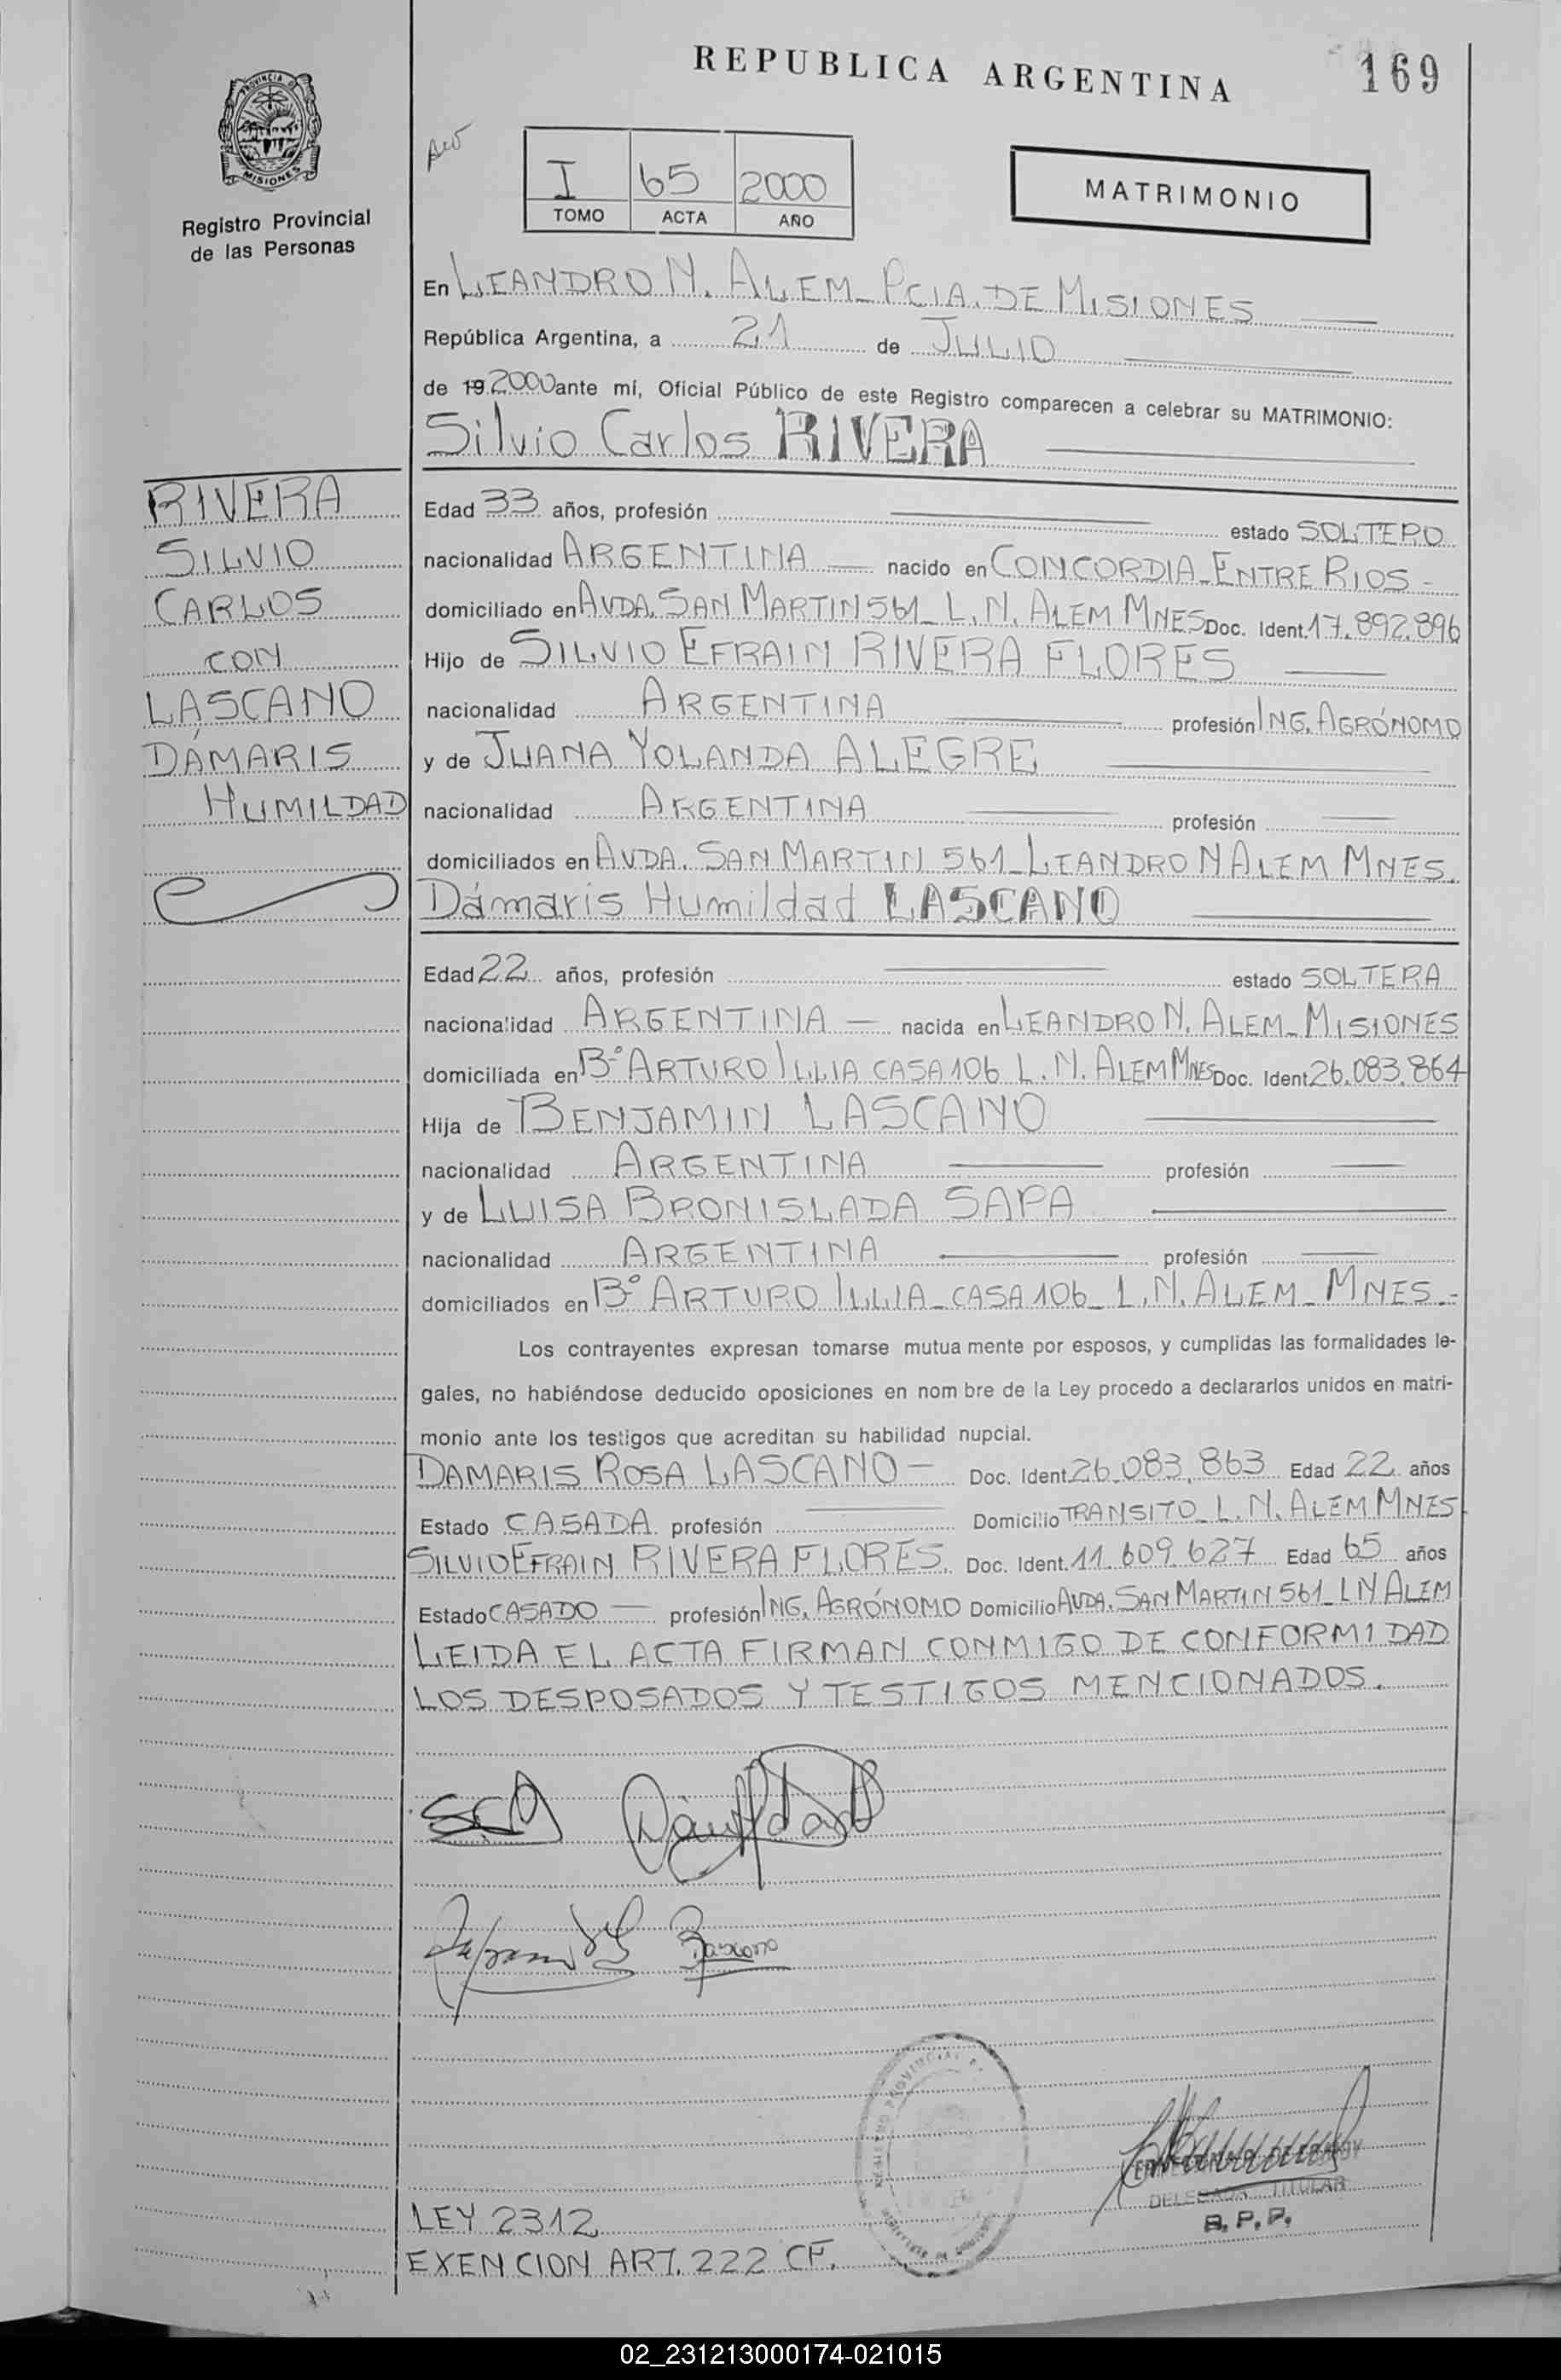 REPUBLICA ARGENTINA
169
PROVINCIA D
MISIONES
Registro Provincial
de las Personas
I 65 2000
TOMO ACTA AÑO
MATRIMONIO
En LEANDRO N. ALEM_ PCIA. DE MISIONES
República Argentina, a 21 de JULIO
de 19 2000 ante mí, Oficial Público de este Registro comparecen a celebrar su MATRIMONIO:
Silvio Carlos RIVERA
RIVERA
SILVIO
CARLOS
CON
LASCANO
DÁMARIS
HUMILDAD
Edad 33 años, profesión estado SOLTERO
nacionalidad ARGENTINA nacido en CONCORDIA_ENTRE RIOS-
domiciliado en AVDA. SAN MARTIN 561_ L. N. ALEM MNES Doc. Ident. 17.892.896
Hijo de SILVIO EFRAIN RIVERA FLORES
nacionalidad ARGENTINA profesión ING. AGRÓNOMO
y de JUANA YOLANDA ALEGRE
nacionalidad ARGENTINA profesión
domiciliados en AVDA. SAN MARTIN 561_LEANDRO N ALEM MNES.
Dámaris Humildad LASCANO
Edad 22 años, profesión estado SOLTERA
nacionalidad ARGENTINA nacida en LEANDRO N. ALEM_MISIONES
domiciliada en Bº ARTURO ILLIA CASA 106 L. N. ALEM MNES Doc. Ident. 26.083.864
Hija de BENJAMIN LASCANO
nacionalidad ARGENTINA profesión
y de LUISA BRONISLADA SAPA
nacionalidad ARGENTINA profesión
domiciliados en Bº ARTURO ILLIA_CASA 106_ L. N. ALEM_ MNES.-
Los contrayentes expresan tomarse mutua mente por esposos, y cumplidas las formalidades le-
gales, no habiéndose deducido oposiciones en nom bre de la Ley procedo a declararlos unidos en matri-
monio ante los testigos que acreditan su habilidad nupcial.
DAMARIS ROSA LASCANO- Doc. Ident. 26.083.863 Edad 22 años
Estado CASADA profesión Domicilio TRANSITO_ L. N. ALEM MNES
SILVIO EFRAIN RIVERA FLORES Doc. Ident. 11.609.627 Edad 65 años
Estado CASADO profesión ING. AGRÓNOMO Domicilio AVDA. SAN MARTIN 561_LN ALEM
LEIDA EL ACTA FIRMAN CONMIGO DE CONFORMIDAD
LOS DESPOSADOS Y TESTIGOS MENCIONADOS.
DELEGADA TITULAR
R. P. P.
LEY 2312
EXENCION ART. 222 CF.
02_231213000174-021015